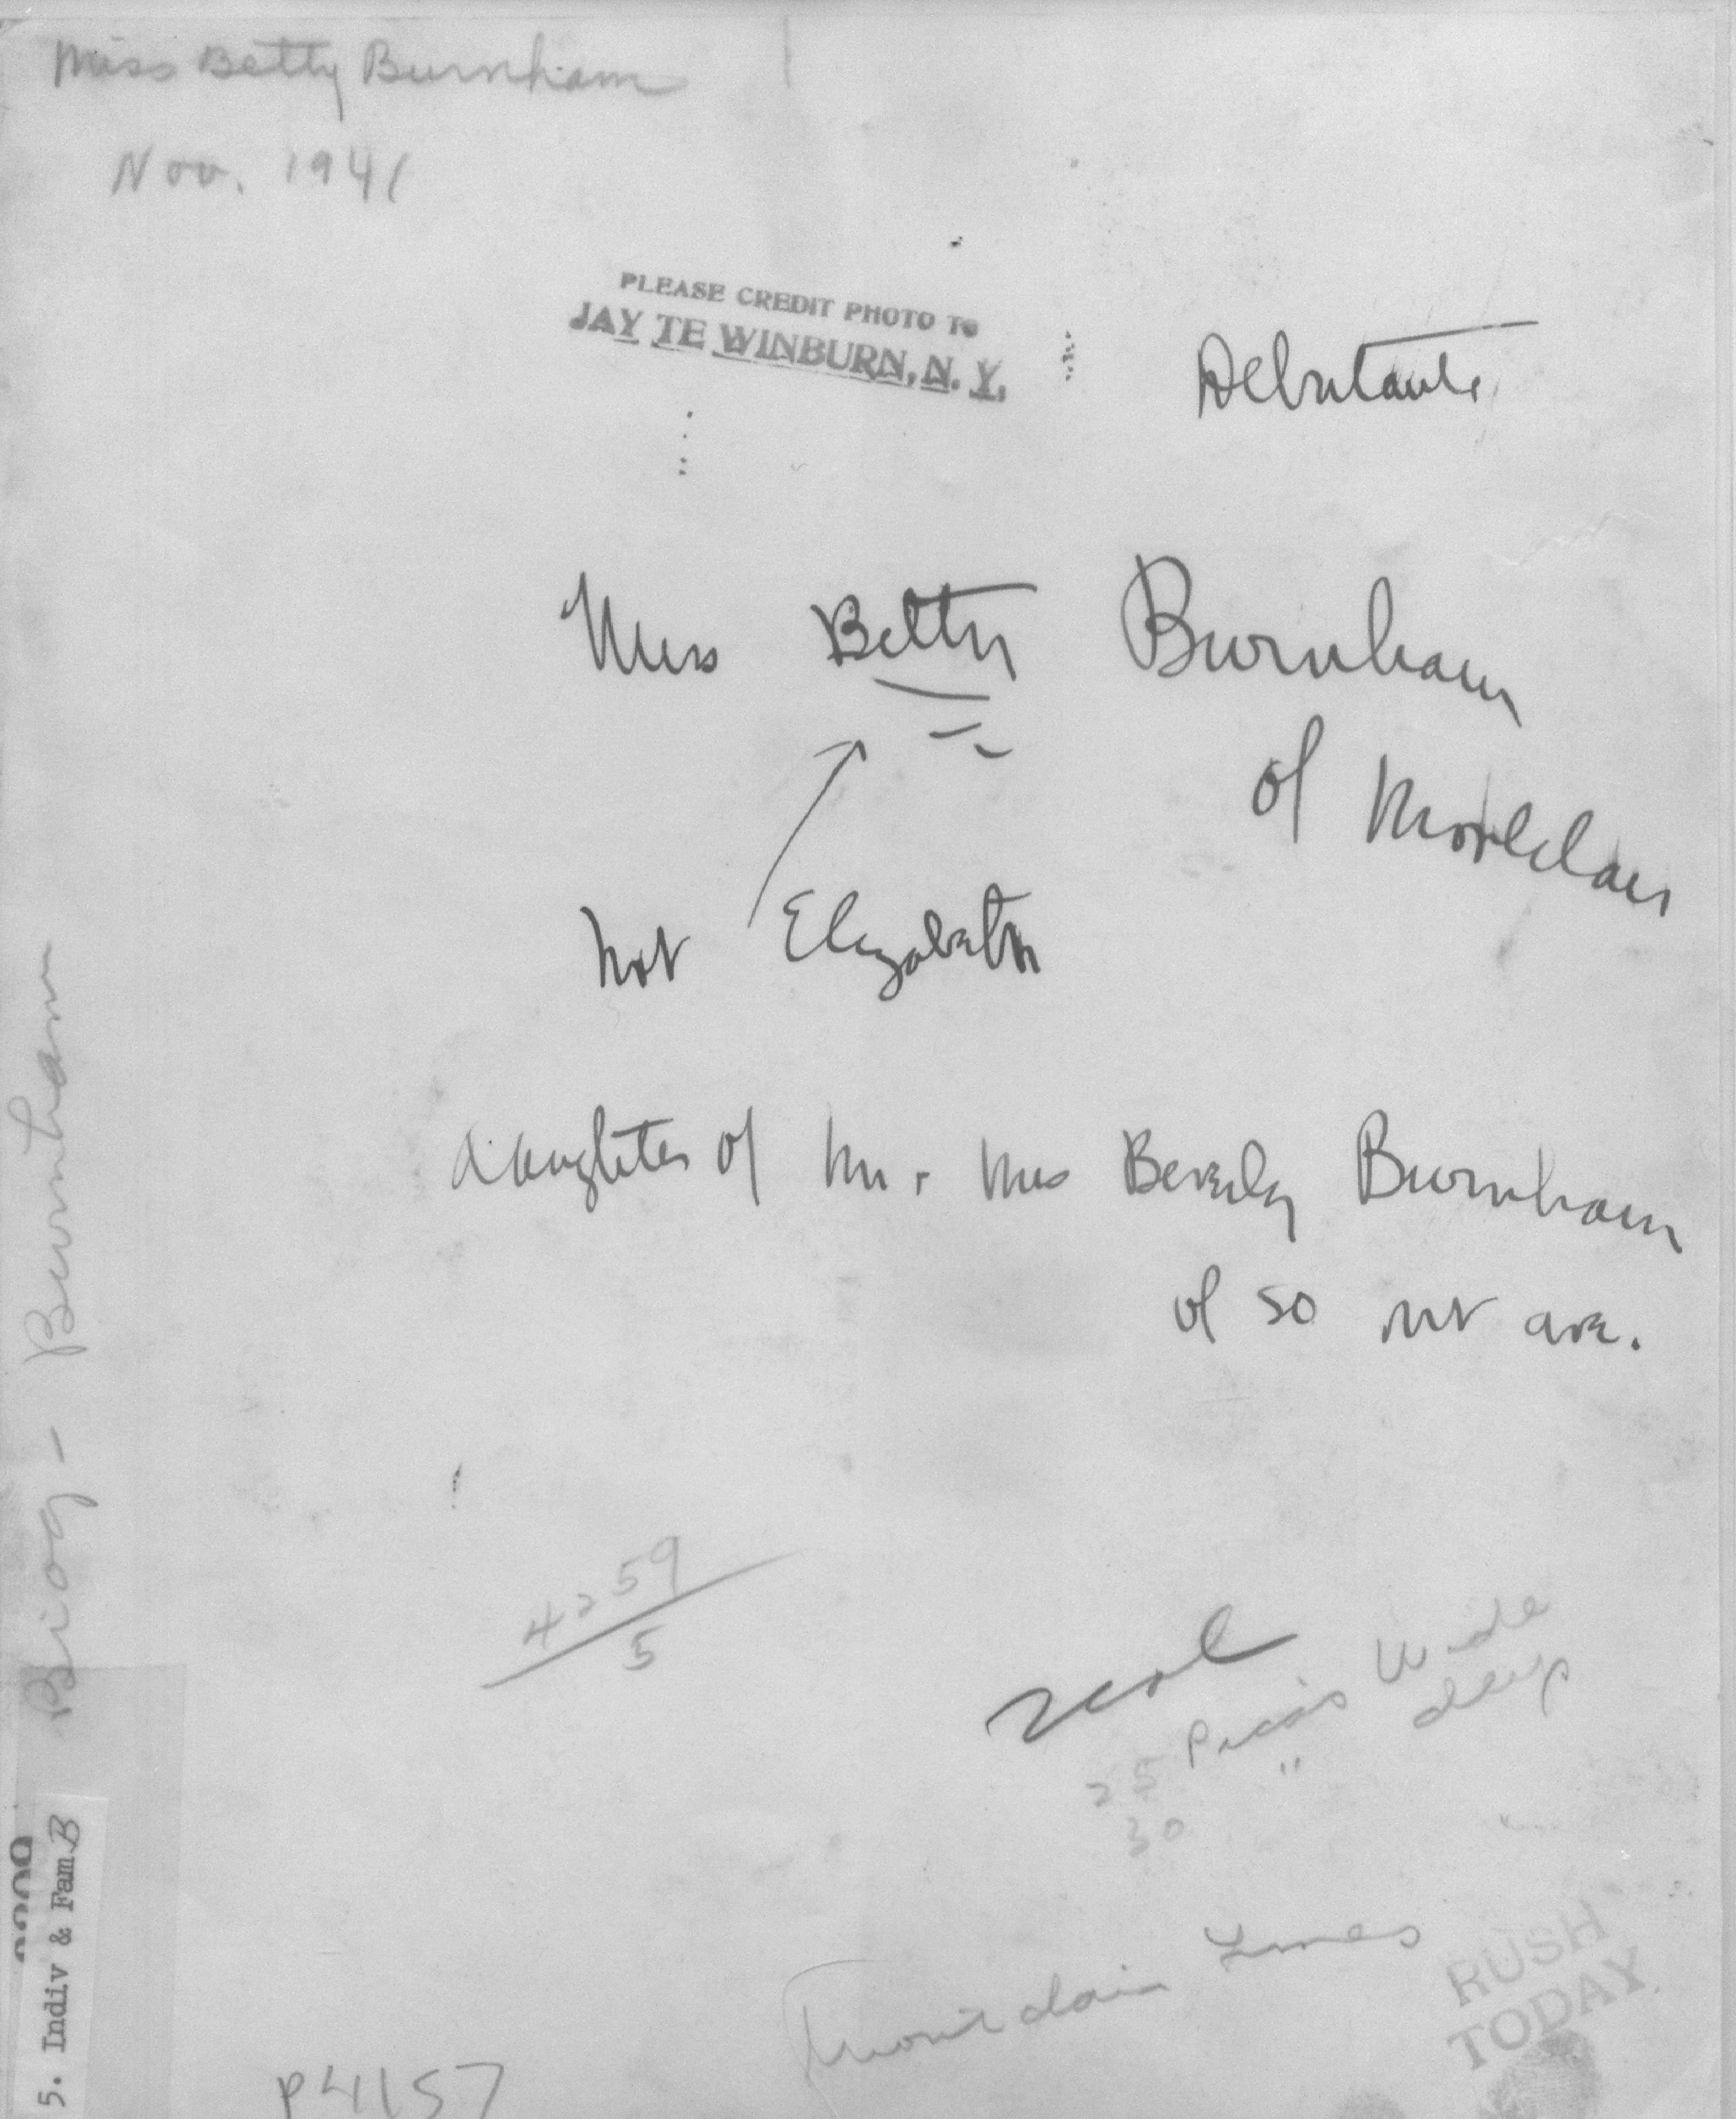 Miss Betty Burnham
Nov. 1941
PLEASE CREDIT PHOTO TO
JAY TE WINBURN, N. Y.
Debutante
Miss Betty Burnham
of Montclair
Not Elizabeth
daughter of Mr. Mrs Beverly Burnham
of So Mt ave.
Biog - Burnham
4259
5
25 Picas Wide
30 " deep
Montclair Times
RUSH
TODAY
5. Indiv & Fam B
P4157